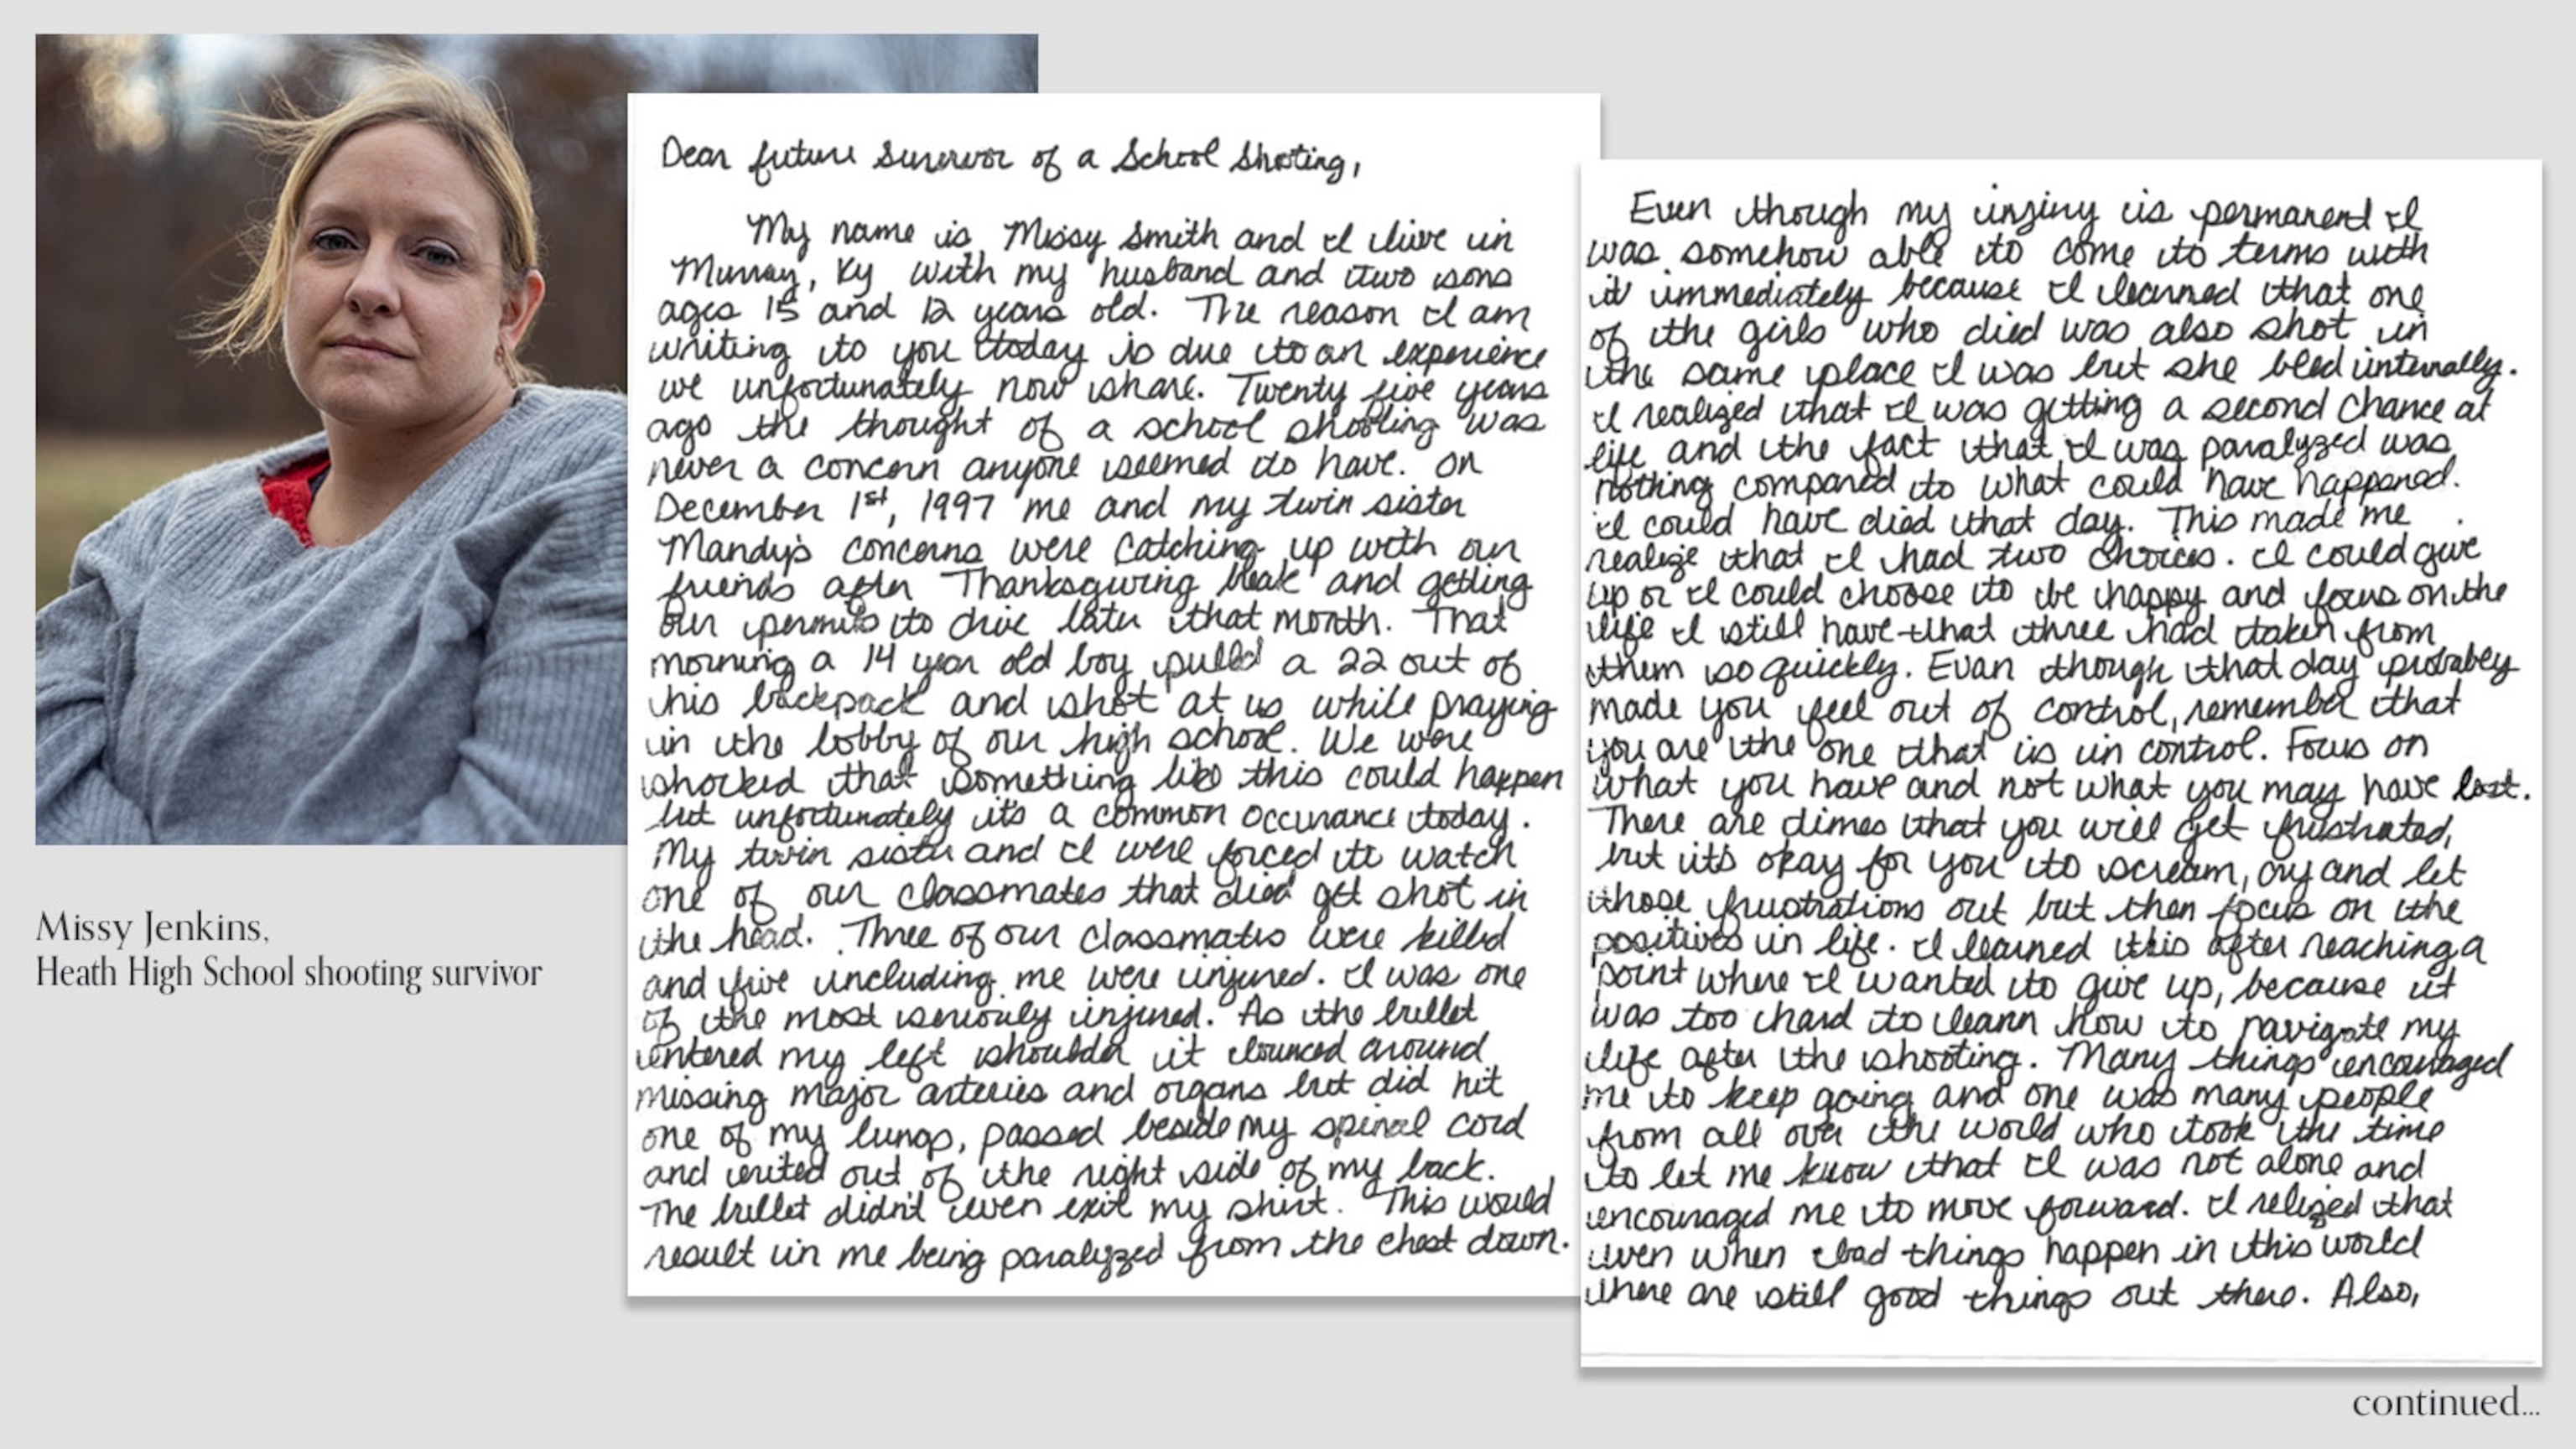 Missy Jenkins,
Heath High School shooting survivor
Dear future Survivor of a School Shooting,
My name is Missy Smith and I live in
Murray, Ky with my husband and two sons
ages 15 and 12 years old. The reason I am
writing to you today is due to an experience
we unfortunately now share. Twenty five years
ago the thought of a school shooting was
never a concern anyone seemed to have. On
December 1st, 1997 me and my twin sister
Mandy's concerns were catching up with our
friends after Thanksgiving break and getting
our permits to drive later that month. That
morning a 14 year old boy pulled a 22 out of
his backpack and shot at us while praying
in the lobby of our high school. We were
shocked that something like this could happen
but unfortunately it's a common occurance today.
My twin sister and I were forced to watch
one of our classmates that died get shot in
the head. Three of our classmates were killed
and five including me were injured. I was one
of the most seriously injured. As the bullet
entered my left shoulder it bounced around
missing major arteries and organs but did hit
one of my lungs, passed beside my spinal cord
and exited out of the right side of my back.
The bullet didn't even exit my shirt. This would
result in me being paralyzed from the chest down.
Even though my injury is permanent I
was somehow able to come to terms with
it immediately because I learned that one
of the girls who died was also shot in
the same place I was but she bled internally.
I realized that I was getting a second chance at
life and the fact that I was paralyzed was
nothing compared to what could have happened.
I could have died that day. This made me
realize that I had two choices. I could give
up or I could choose to be happy and focus on the
life I still have-that three had taken from
them so quickly. Evan though that day probabey
made you feel out of control, remember that
you are the one that is in control. Focus on
what you have and not what you may have lost.
There are times that you will get frustrated,
but it's okay for you to scream, cry and let
those frustrations out but then focus on the
positives in life. I learned this after reaching a
point where I wanted to give up, because it
was too hard to learn how to navigate my
life after the shooting. Many things encouraged
me to keep going and one was many people
from all over the world who took the time
to let me know that I was not alone and
encouraged me to move forward. I relized that
even when bad things happen in this world
there are still good things out there. Also,
continued...